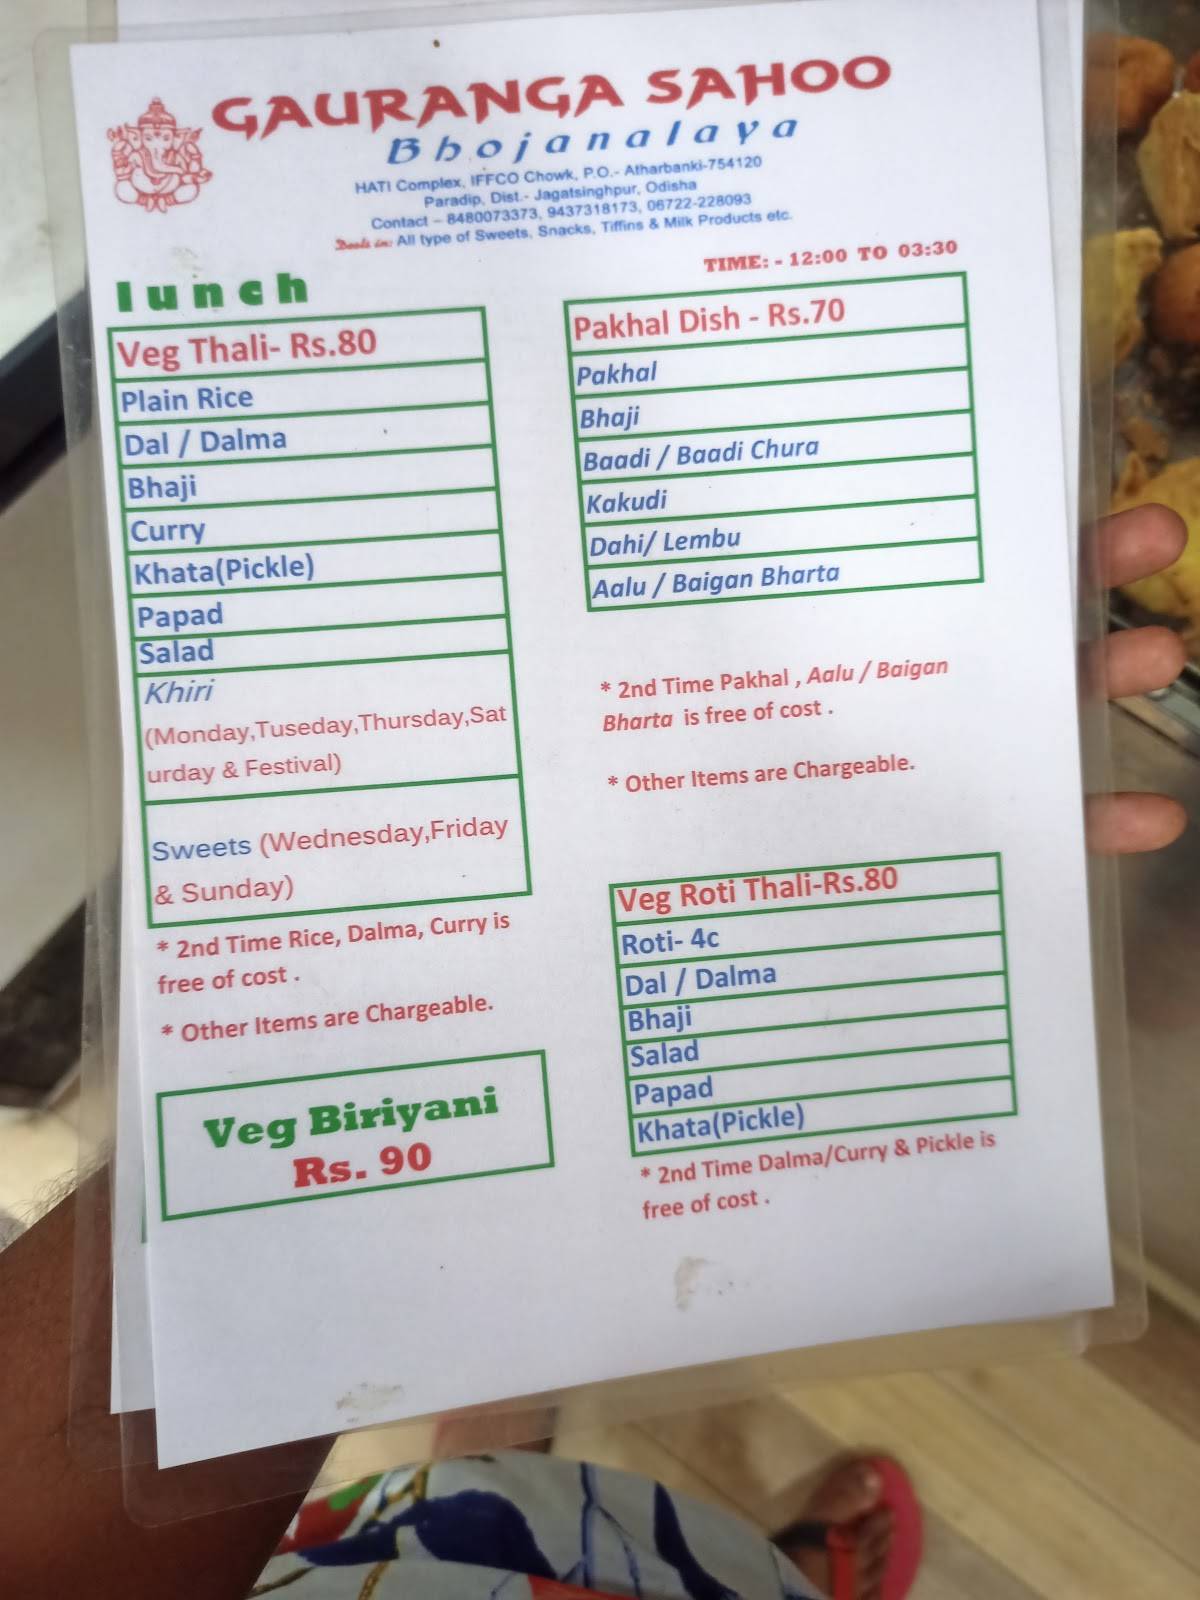 GAURANGA SAHOO
Bhojanalaya
HATI Complex, IFFCO Chowk, P.O.- Atharbanki-754120
Paradip, Dist.- Jagatsinghpur, Odisha
Contact – 8480073373, 9437318173, 06722-228093
Deals in: All type of Sweets, Snacks, Tiffins & Milk Products etc.
TIME: - 12:00 TO 03:30
lunch
Veg Thali- Rs.80
Plain Rice
Dal / Dalma
Bhaji
Curry
Khata(Pickle)
Papad
Salad
Khiri
(Monday,Tuseday,Thursday,Sat
urday & Festival)
Sweets (Wednesday,Friday
& Sunday)
* 2nd Time Rice, Dalma, Curry is
free of cost .
* Other Items are Chargeable.
Veg Biriyani
Rs. 90
Pakhal Dish - Rs.70
Pakhal
Bhaji
Baadi / Baadi Chura
Kakudi
Dahi/ Lembu
Aalu / Baigan Bharta
* 2nd Time Pakhal , Aalu / Baigan
Bharta is free of cost .
* Other Items are Chargeable.
Veg Roti Thali-Rs.80
Roti- 4c
Dal / Dalma
Bhaji
Salad
Papad
Khata(Pickle)
* 2nd Time Dalma/Curry & Pickle is
free of cost .